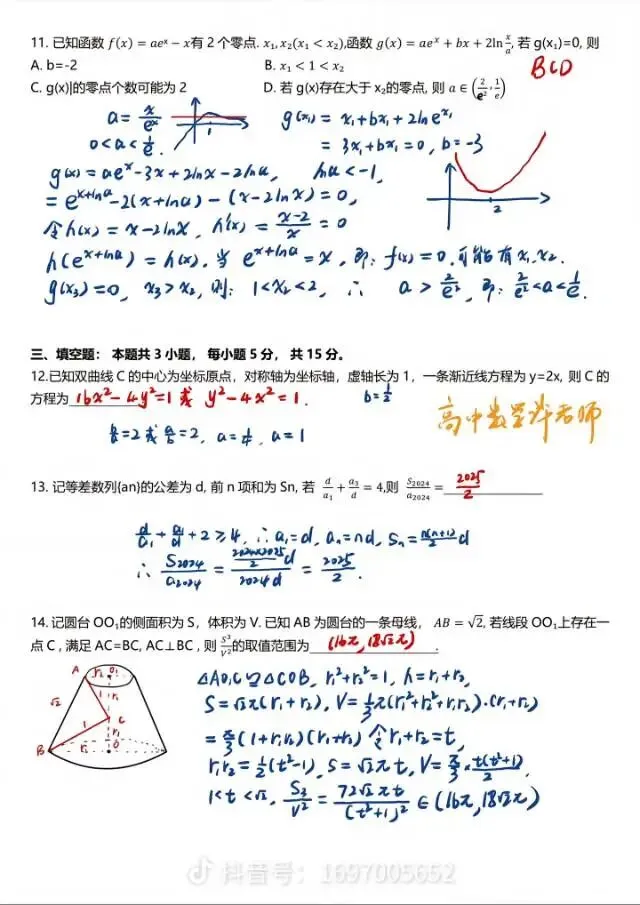 11. 已知函数 f(x) = aeˣ − x有 2 个零点. x₁, x₂(x₁ < x₂),函数 g(x) = aeˣ + bx + 2ln x/a, 若 g(x₁)=0, 则
A. b=-2 B. x₁ < 1 < x₂
BCD
C. g(x)|的零点个数可能为 2 D. 若 g(x)存在大于 x₂的零点, 则 a ∈ (2/e², 1/e)
a = x/eˣ
0<a<1/e.
1
g(x₁) = x₁+bx₁+2lneˣ¹
= 3x₁+bx₁=0, b=-3
g(x)=aeˣ-3x+2lnx-2lna, lna<-1,
= e^(x+lna)-2(x+lna)-(x-2lnx)=0,
令h(x)=x-2lnx, h'(x)=(x-2)/x=0
2
h(e^(x+lna))=h(x). 当 e^(x+lna)=x, 即: f(x)=0.可能有x₁,x₂.
g(x₃)=0, x₃>x₂, 则: 1<x₂<2, ∴ a>2/e², 即: 2/e²<a<1/e.
三、填空题: 本题共 3 小题, 每小题 5 分, 共 15 分。
12.已知双曲线 C 的中心为坐标原点，对称轴为坐标轴，虚轴长为 1，一条渐近线方程为 y=2x, 则 C 的
方程为 16x²-4y²=1 或 y²-4x²=1.
b=1/2
b/a=2 或 a/b=2, a=1/4, a=1
高中数学许老师
13. 记等差数列(an)的公差为 d, 前 n 项和为 Sn, 若 d/a₁ + a₃/d = 4,则 S₂₀₂₄/a₂₀₂₄ = 2025/2
d/a₁+a₁/d+2≥4, ∴a₁=d, aₙ=nd, Sₙ=n(n+1)/2 d
∴ S₂₀₂₄/a₂₀₂₄ = (2024×2025/2 d)/(2024d) = 2025/2.
14. 记圆台 OO₁的侧面积为 S，体积为 V. 已知 AB 为圆台的一条母线， AB = √2, 若线段 OO₁上存在一
点 C , 满足 AC=BC, AC⊥BC , 则 S³/V²的取值范围为 (16π,18√2π) .
A r₂ O₁
√2 1 r₁
1 C
r₂
B r₁ O
△AO₁C≌△COB, r₁²+r₂²=1, h=r₁+r₂,
S=√2π(r₁+r₂), V=1/3π(r₁²+r₂²+r₁r₂)·(r₁+r₂)
=π/3(1+r₁r₂)(r₁+r₂) 令r₁+r₂=t,
r₁r₂=1/2(t²-1), S=√2πt, V=π/3×t(t²+1)/2.
1<t<√2, S³/V²=72√2πt/(t²+1)²∈(16π,18√2π)
抖音号：1697005652